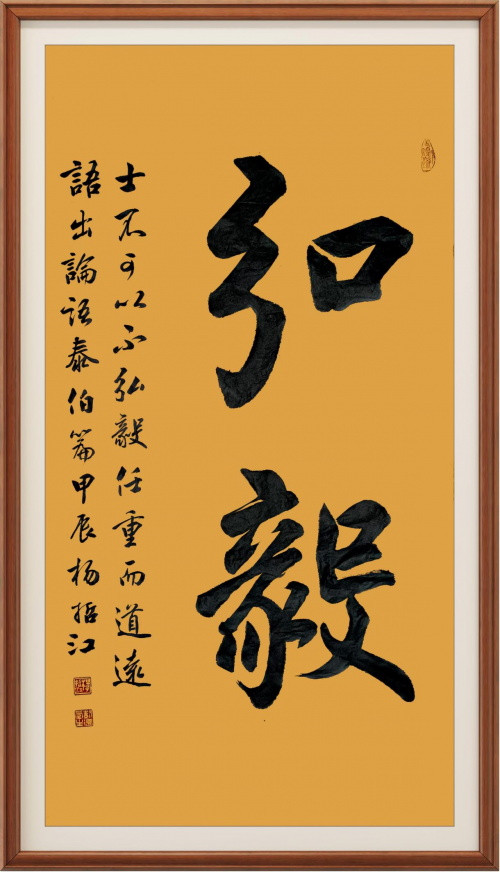 弘毅
士不可以不弘毅任重而道遠
語出論語泰伯篇甲辰杨江